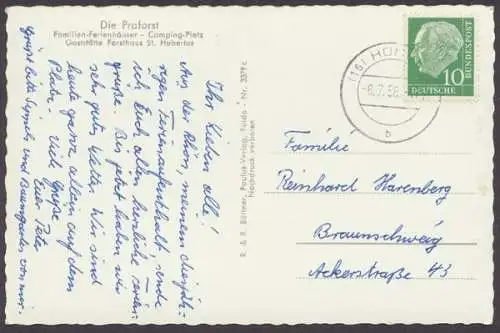 Die Praforst
Familien-Ferienhäuser - Camping-Platz
Gaststätte Forsthaus St. Hubertus
Ihr Lieben alle!
Aus der Rhön, meinem diesjäh-
rigen Ferienaufenthalt sende
ich Euch allen herzliche Ferien-
grüße. Bis jetzt haben wir
sehr gutes Wetter. Wir sind
heute ganz allein auf dem
Platz. Viel Grüße
Euer Peter
Grüßt bitte und Baumgarten von mir.
R. & R. Büttner, Paulus-Verlag, Fulda · Nr. 3379c
Nachdruck verboten
(16)
-6.7.56
b
10
DEUTSCHE
BUNDESPOST
Familie
Reinhard Harenberg
Braunschweig
Ackerstraße 43